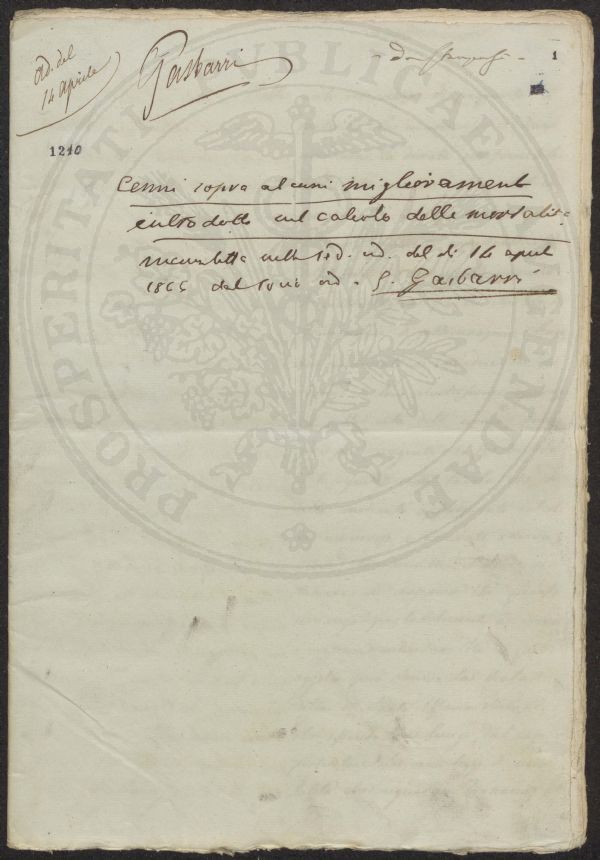 ad. del
14 Aprile
Gasbarri
Da
1
1210
Cenni sopra alcuni miglioramenti
introdotti nel calcolo delle mortalità
nella sed. ad. del dì 14 april
1865 dal socio ord. G. Gasbarri
PROSPERITATI PUBLICAE AUGENDAE